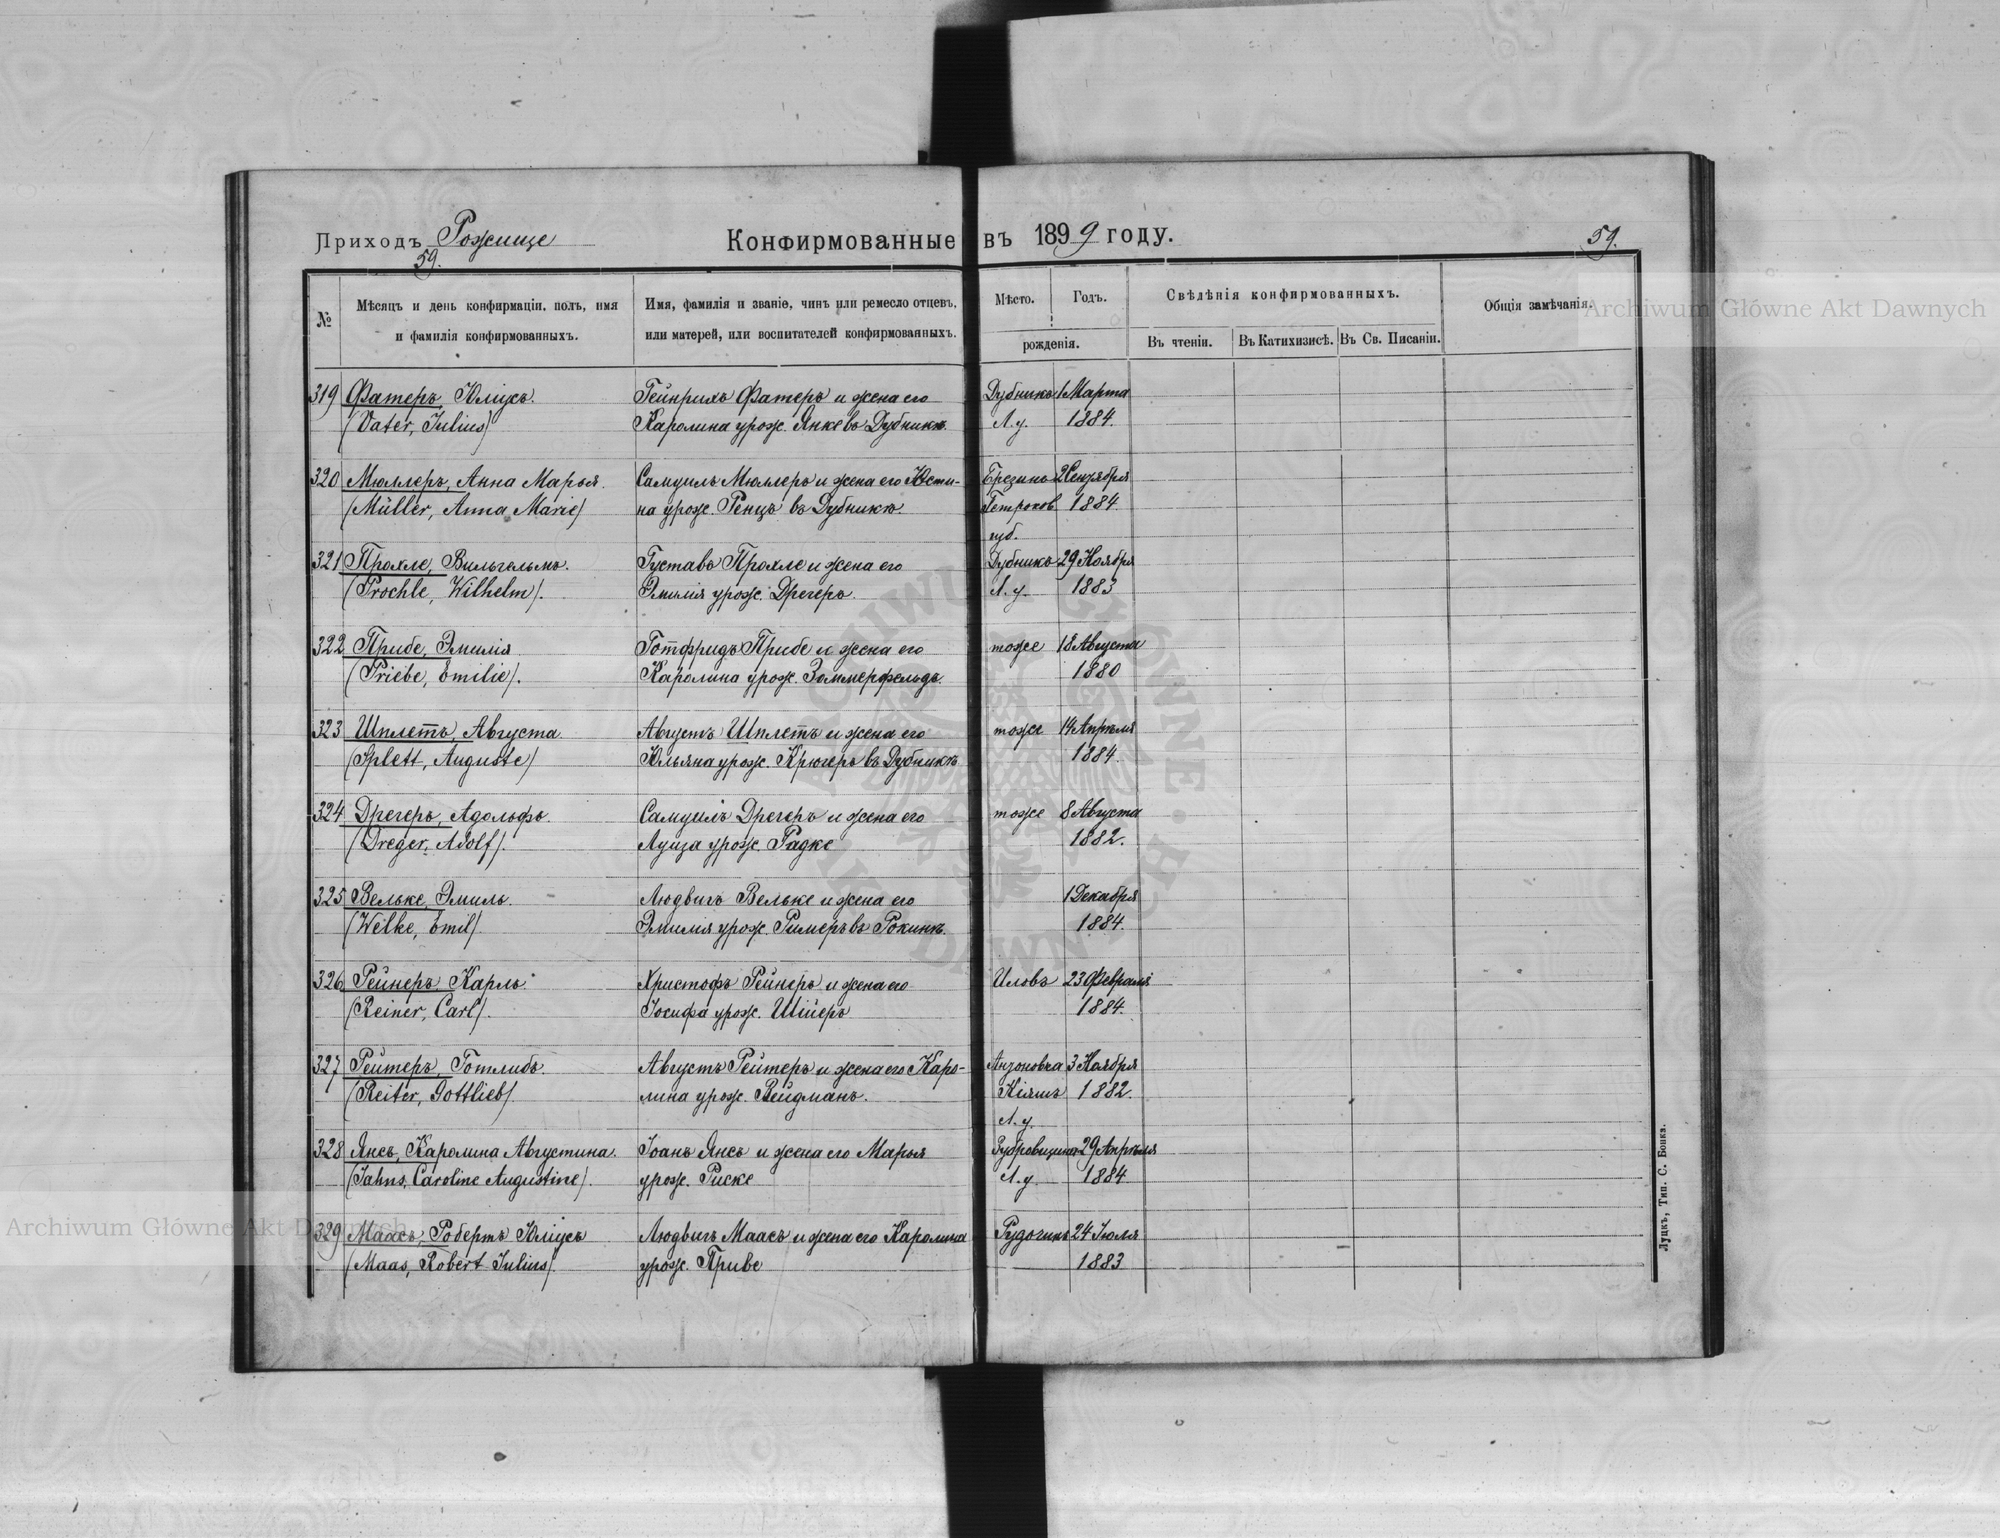 Приходъ Рожище
Конфирмованные въ 1899 году.
59.
59.
№
Мѣсяцъ и день конфирмаціи, полъ, имя
и фамилія конфирмованныхъ.
Имя, фамилія и званіе, чинъ или ремесло отцевъ,
или матерей, или воспитателей конфирмованныхъ.
Мѣсто.
Годъ.
рожденія.
Свѣдѣнія конфирмованныхъ.
Въ чтеніи.
Въ Катихизисѣ.
Въ Св. Писаніи.
Общія замѣчанія.
319 Фатеръ, Юліусъ. Гейнрихъ Фатеръ и жена его Дубникъ 1 Марта
(Vater, Julius) Каролина урож. Янке въ Дубникѣ. Л. у. 1884.
320 Мюллеръ, Анна Марья. Самуилъ Мюллеръ и жена его Юсти- Брезинъ 2 Сентября
(Müller, Anna Marie) на урож. Ренцъ въ Дубникѣ. Петроков. 1884
губ.
321 Прохле, Вильгельмъ. Густавъ Прохле и жена его Дубникъ 29 Ноября
(Prochle, Wilhelm). Эмилія урож. Дрегеръ. Л. у. 1883
322 Прибе, Эмилія Готфридъ Прибе и жена его тоже 18 Августа
(Priebe, Emilie). Каролина урож. Зоммерфельдъ. 1880
323 Шплеттъ, Августа. Августъ Шплетъ и жена его тоже 14 Апрѣля
(Splett, Auguste) Юльяна урож. Крюгеръ въ Дубникѣ 1884.
324 Дрегеръ, Адольфъ. Самуилъ Дрегеръ и жена его тоже 8 Августа
(Dreger, Adolf). Луиза урож. Радке 1882.
325 Вельке, Эмиль. Людвигъ Вельке и жена его 1 Декабря
(Welke, Emil). Эмилія урож. Римеръ въ Рокинѣ. 1884.
326 Рейнеръ, Карлъ. Христофъ Рейнеръ и жена его Иловъ 23 Февраля
(Reiner, Carl). Іосифа урож. Шійеръ 1884.
327 Рейтеръ, Готлибъ. Августъ Рейтеръ и жена его Каро- Антоновка 3 Ноября
(Reiter, Gottlieb) лина урож. Вейдманъ. Кіяшъ 1882.
Л. у.
328 Янсъ, Каролина Августина. Іоанъ Янсъ и жена его Марья Зубровщина 29 Апрѣля
(Jahns, Caroline Augustine). урож. Риске Л. у. 1884
329 Маасъ, Робертъ Юліусъ Людвигъ Маасъ и жена его Каролина 24 Іюля
(Maas, Robert Julius). урож. Приве 1883
Луцкъ, Тип. С. Бонка.
Archiwum Główne Akt Dawnych
Archiwum Główne Akt Dawnych